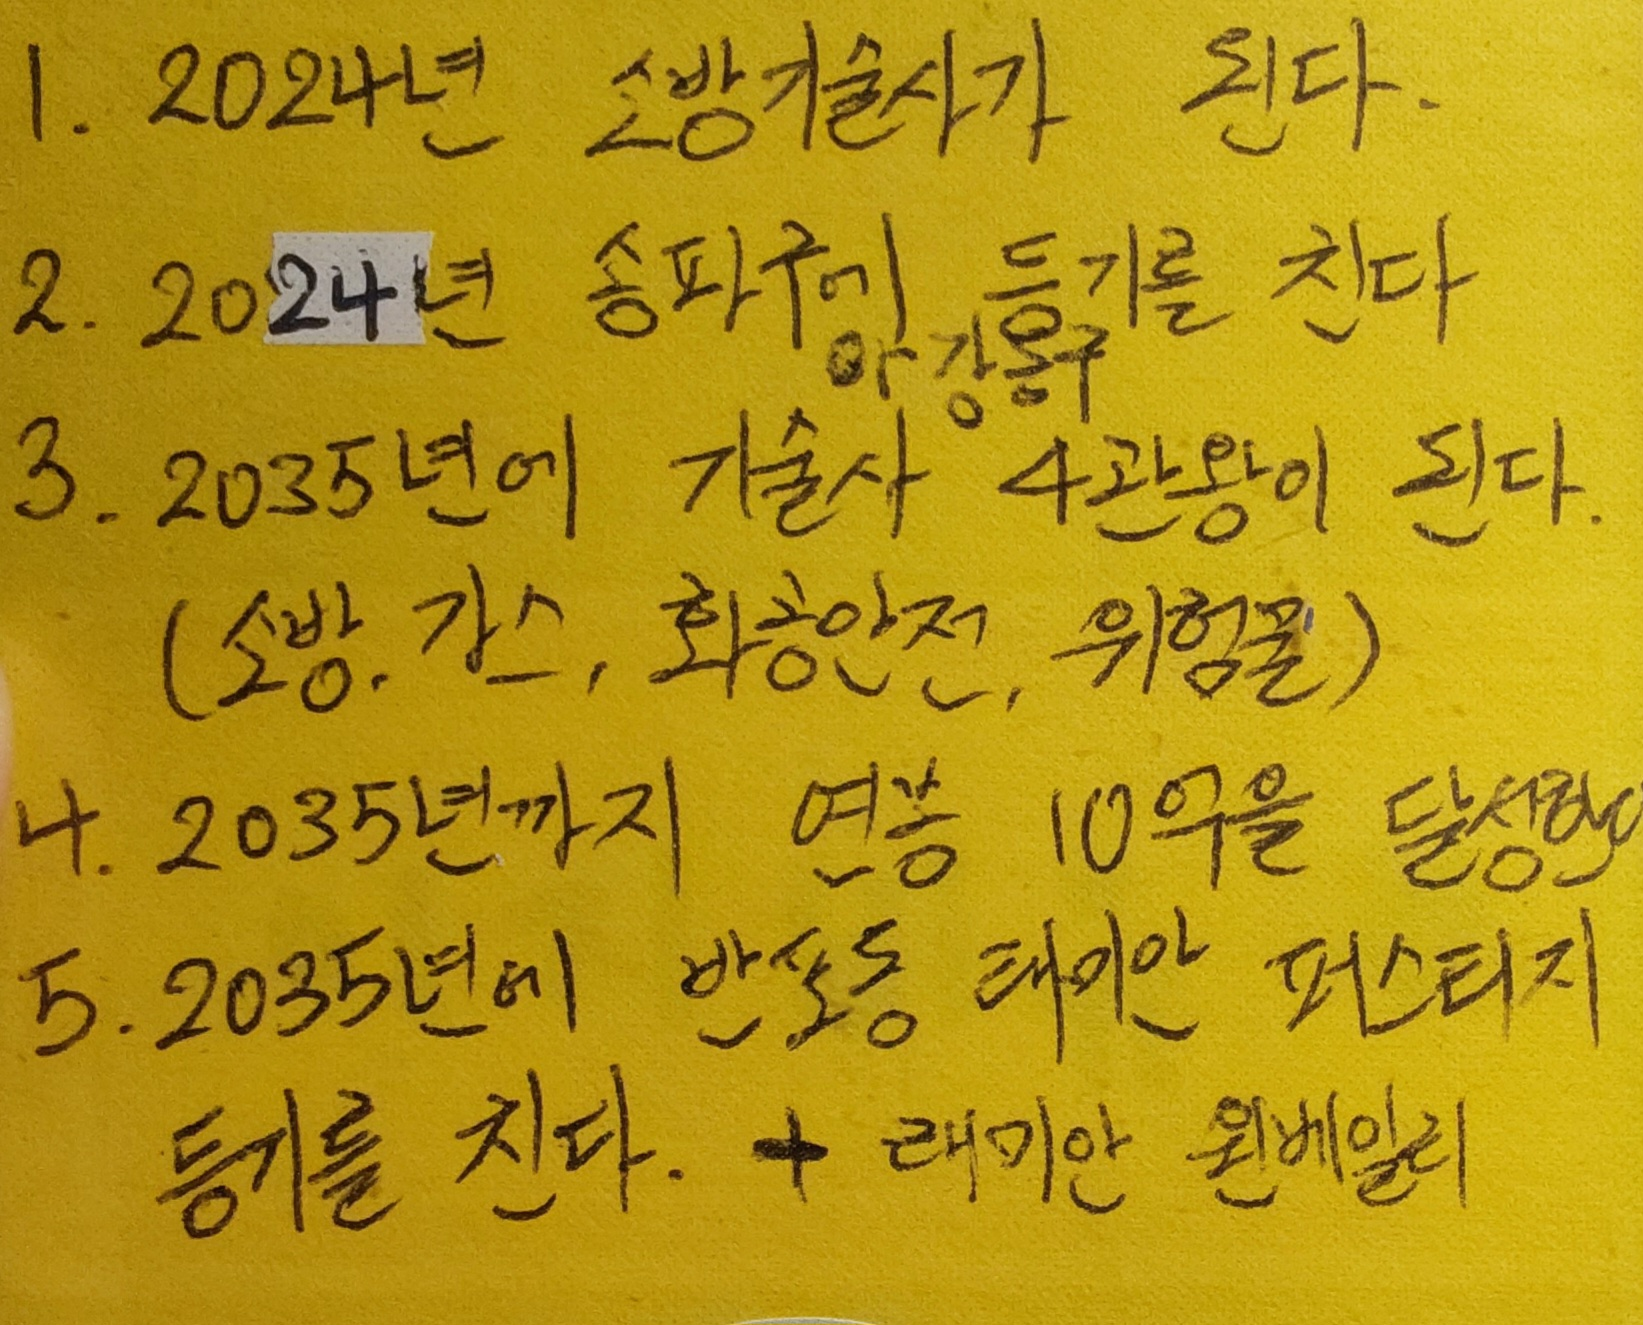 1. 2024년 소방기술사가 된다.
2. 2024년 송파구에 등기를 친다
와 강동구
3. 2035년에 기술사 4관왕이 된다.
(소방. 가스, 화공안전, 위험물)
4. 2035년까지 연봉 10억을 달성한다
5. 2035년에 반포동 래미안 퍼스티지
등기를 친다. + 래미안 원베일리